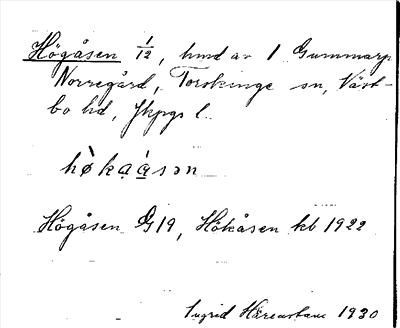 Högåsen 1/12, hmd av 1 Gummarp
Norregård, Torskinge sn, Väst-
bo hd, Jkpgs l.
hø̀kạásən
Högåsen G 19, Hökåsen kb 1922
Ingrid 1930